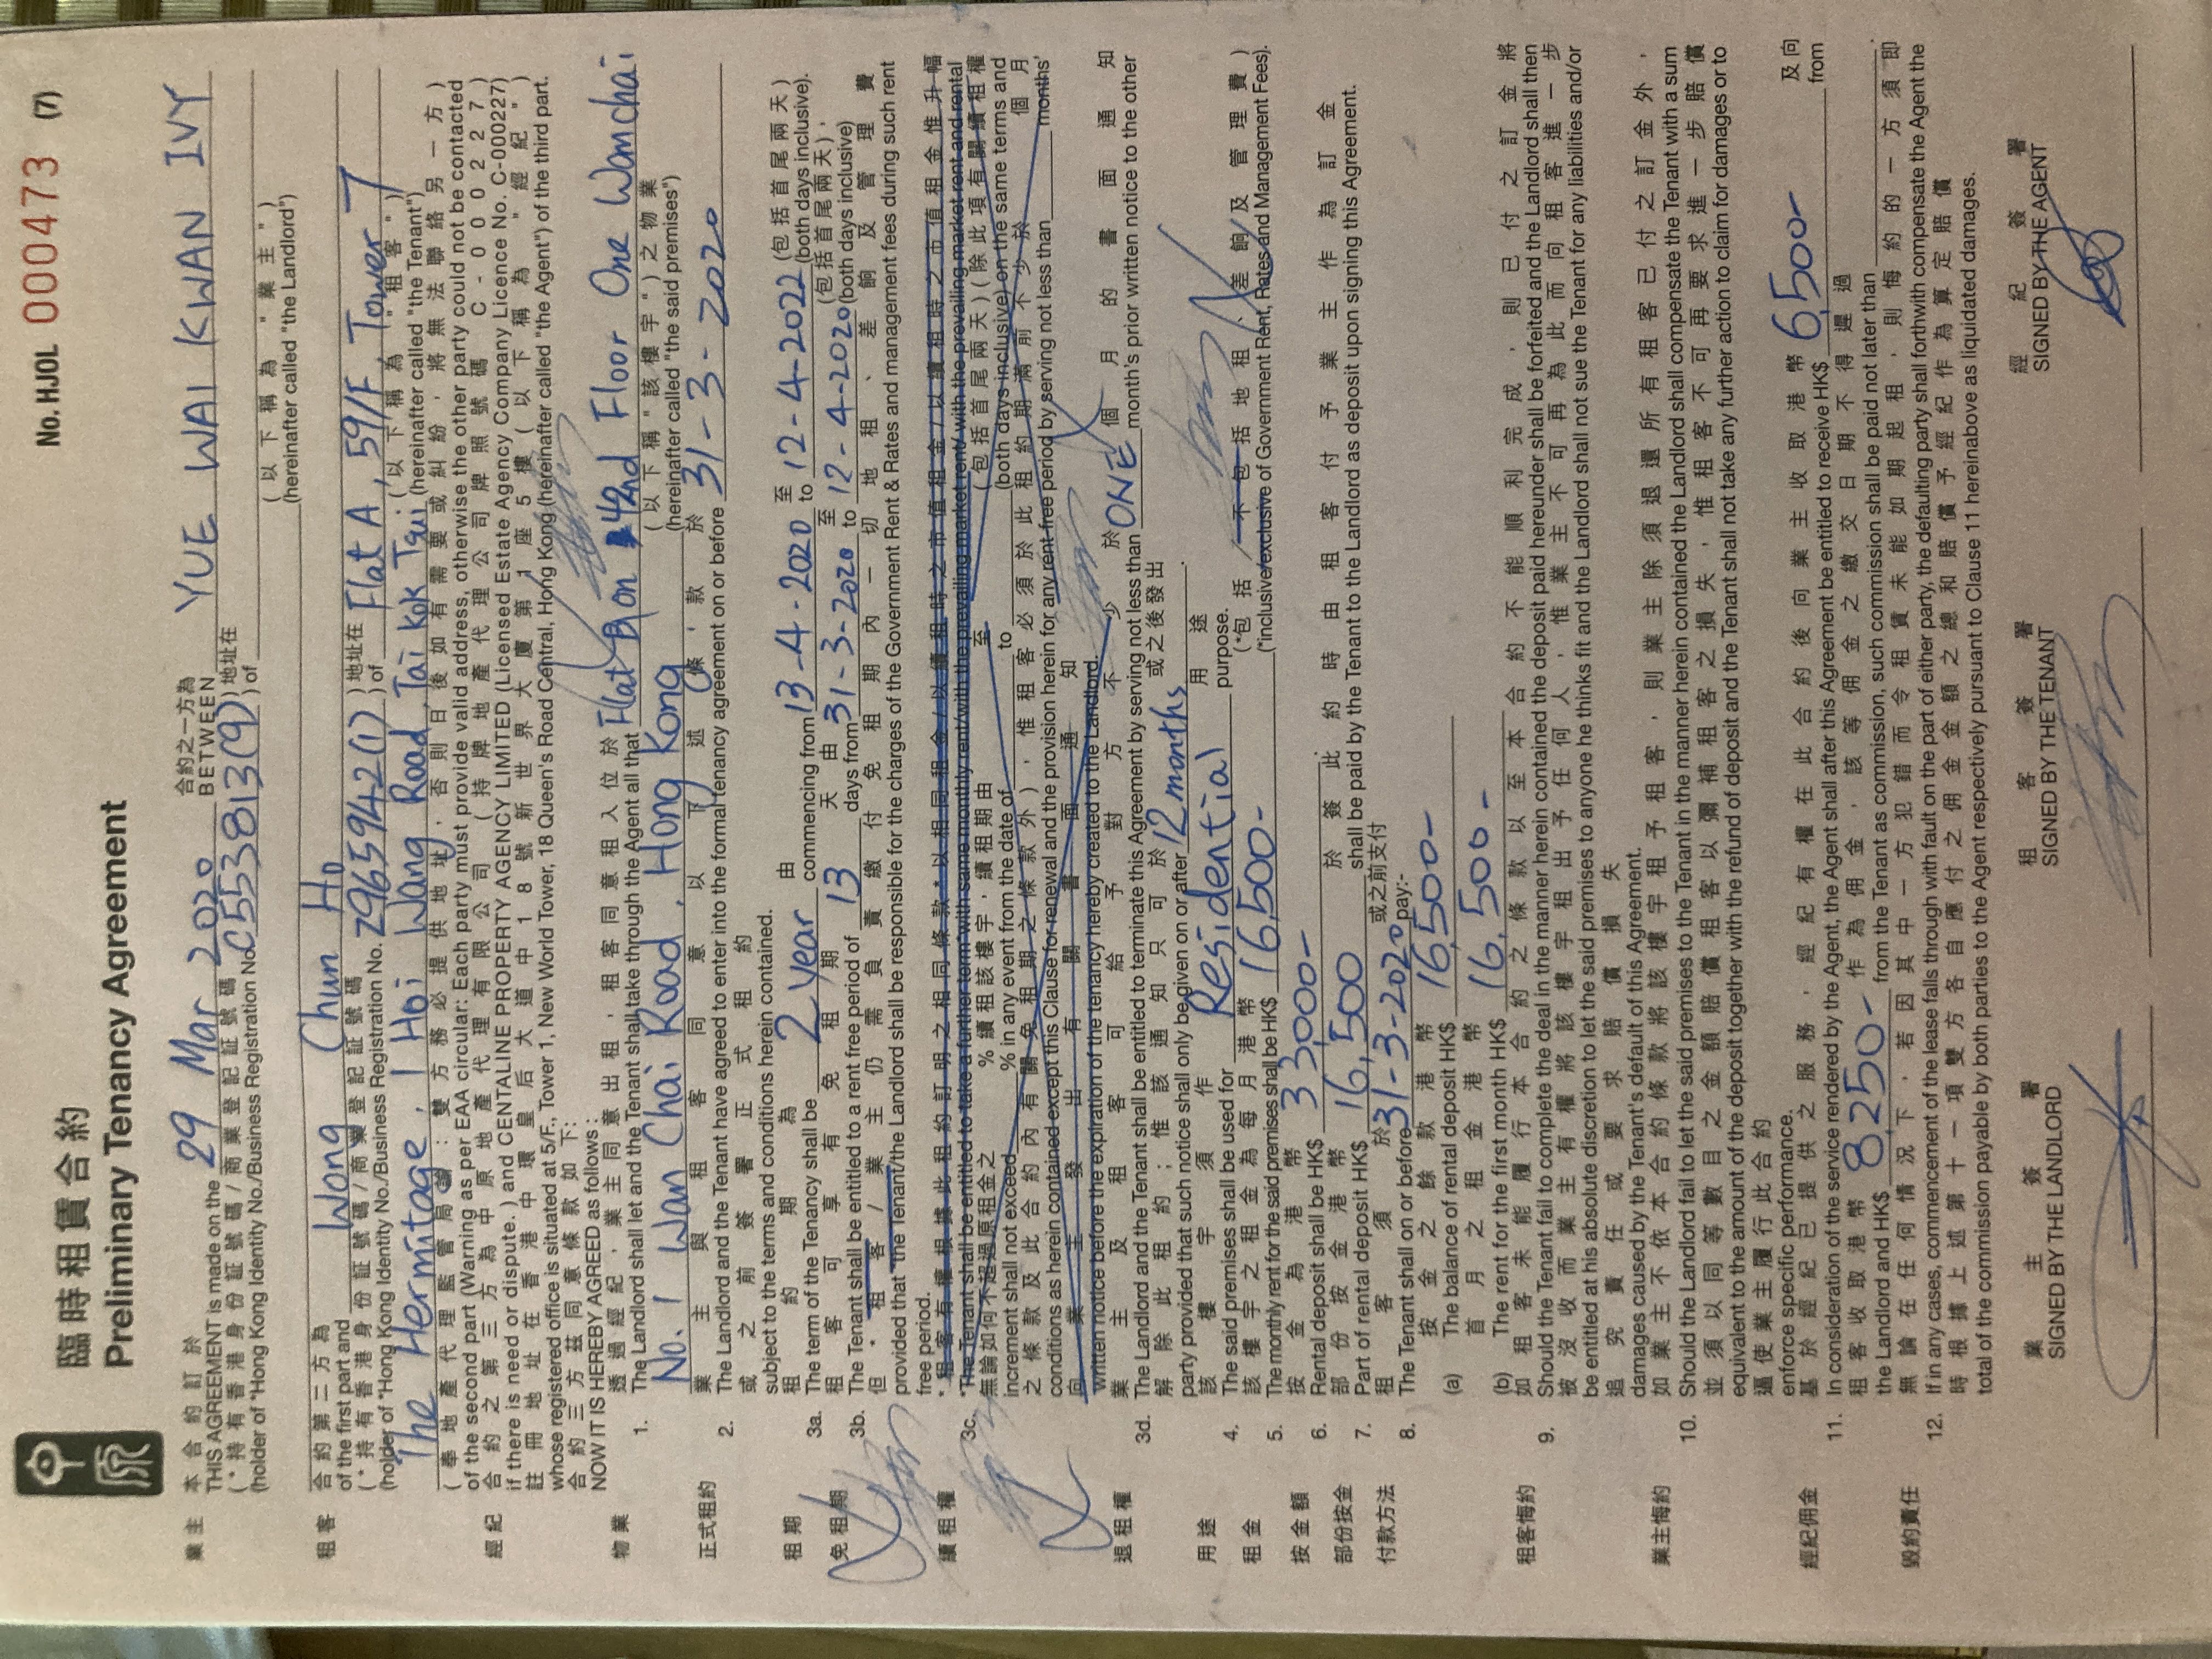 No. HJOL 000473 (7)
臨時租賃合約
Preliminary Tenancy Agreement
業主
本合約訂於 29 Mar 2020 合約之一方為 YUE WAI KWAN IVY
THIS AGREEMENT is made on the BETWEEN
(*持有香港身份証號碼/商業登記証號碼 C553813(9) )地址在 (以下稱為"業主")
(holder of *Hong Kong Identity No./Business Registration No. ) of (hereinafter called "the Landlord")
租客
合約第二方為 Wong Chun Ho
of the first part and
(*持有香港身份証號碼/商業登記証號碼 Z965942(1) )地址在 Flat A, 59/F, Tower 7
(holder of *Hong Kong Identity No./Business Registration No. ) of
The Hermitage, 1 Hoi Wang Road Tai Kok Tsui (以下稱為"租客")
(hereinafter called "the Tenant")
(奉地產代理監管局諭:雙方務必提供地址,否則日後如有需要或糾紛,將無法聯絡另一方)
of the second part (Warning as per EAA circular: Each party must provide valid address, otherwise the other party could not be contacted
經紀
合約之第三方為中原地產代理有限公司(持牌地產代理公司牌照號碼C-000227)
if there is need or dispute.) and CENTALINE PROPERTY AGENCY LIMITED (Licensed Estate Agency Company Licence No. C-000227)
註冊地址在香港中環皇后大道中18號新世界大廈第1座5樓(以下稱為"經紀")
whose registered office is situated at 5/F., Tower 1, New World Tower, 18 Queen's Road Central, Hong Kong (hereinafter called "the Agent") of the third part.
合約三方茲同意條款如下:
NOW IT IS HEREBY AGREED as follows:
物業
1. 透過經紀,業主同意出租,租客同意租入位於 Flat B on 42nd Floor One Wanchai
The Landlord shall let and the Tenant shall take through the Agent all that
No. 1 Wan Chai Road, Hong Kong (以下稱"該樓宇")之物業
(hereinafter called "the said premises")
正式租約
2. 業主與租客同意以下述條款,於 31-3-2020
The Landlord and the Tenant have agreed to enter into the formal tenancy agreement on or before
或之前簽署正式租約
subject to the terms and conditions herein contained.
租期
3a. 租約期為 2 year 由 13-4-2020 至 12-4-2022 (包括首尾兩天)
The term of the Tenancy shall be commencing from to (both days inclusive).
免租期
3b. 租客可享有免租期 13 天由 31-3-2020 至 12-4-2020 (包括首尾兩天),
The Tenant shall be entitled to a rent free period of days from to (both days inclusive)
但*租客/業主仍需負責繳付免租期內一切地租、差餉及管理費
provided that *the Tenant/the Landlord shall be responsible for the charges of the Government Rent & Rates and management fees during such rent
free period.
續租權
3c. *租客有權根據此租約訂明之相同條款*以相同租金/以續租時之市值租金/以續租時之市值租金惟升幅
*The Tenant shall be entitled to take a further term with same monthly rent/with the prevailing market rent/with the prevailing market rent and rental
無論如何不超過原租金之 %續租該樓宇,續租期由 至 (包括首尾兩天)(除此項有關續租權
increment shall not exceed % in any event from the date of to (both days inclusive) on the same terms and
之條款及此合約內有關免租期之條款外),惟租客必須於此租約期滿前不少於 個月
conditions as herein contained except this Clause for renewal and the provision herein for any rent free period by serving not less than months'
向業主發出有關書面通知
written notice before the expiration of the tenancy hereby created to the Landlord.
退租權
3d. 業主及租客可給予對方不少於 ONE 個月的書面通知
The Landlord and the Tenant shall be entitled to terminate this Agreement by serving not less than month's prior written notice to the other
解除此租約;惟該通知只可於 12 months 或之後發出
party provided that such notice shall only be given on or after .
用途
4. 該樓宇須作 Residential 用途
The said premises shall be used for purpose.
租金
5. 該樓宇之租金為每月港幣 16,500- (*包括/不包括地租、差餉及管理費)
The monthly rent for the said premises shall be HK$ (*inclusive/exclusive of Government Rent, Rates and Management Fees).
按金額
6. 按金為港幣 33,000-
Rental deposit shall be HK$
部份按金
7. 部份按金港幣 16,500 於簽此約時由租客付予業主作為訂金
Part of rental deposit HK$ shall be paid by the Tenant to the Landlord as deposit upon signing this Agreement.
付款方法
8. 租客須於 31-3-2020 或之前支付
The Tenant shall on or before pay:-
(a) 按金之餘款港幣 16,500-
The balance of rental deposit HK$
(b) 首月之租金港幣 16,500-
The rent for the first month HK$
租客悔約
9. 如租客未能履行本合約之條款以至本合約不能順利完成,則已付之訂金將
Should the Tenant fail to complete the deal in the manner herein contained the deposit paid hereunder shall be forfeited and the Landlord shall then
被沒收而業主有權將該樓宇租出予任何人,惟業主不可再為此而向租客進一步
be entitled at his absolute discretion to let the said premises to anyone he thinks fit and the Landlord shall not sue the Tenant for any liabilities and/or
追究責任或要求賠償損失
damages caused by the Tenant's default of this Agreement.
業主悔約
10. 如業主不依本合約條款將該樓宇租予租客,則業主除須退還所有租客已付之訂金外,
Should the Landlord fail to let the said premises to the Tenant in the manner herein contained the Landlord shall compensate the Tenant with a sum
並須以同等數目之金額賠償租客以彌補租客之損失,惟租客不可再要求進一步賠償
equivalent to the amount of the deposit together with the refund of deposit and the Tenant shall not take any further action to claim for damages or to
逼使業主履行此合約
enforce specific performance.
經紀佣金
11. 基於經紀已提供之服務,經紀有權在此合約後向業主收取港幣 6,500- 及向
In consideration of the service rendered by the Agent, the Agent shall after this Agreement be entitled to receive HK$ from
租客收取港幣 8,250- 作為佣金,該等佣金之繳交日期不得遲過
the Landlord and HK$ from the Tenant as commission, such commission shall be paid not later than .
毀約責任
12. 無論在任何情況下,若因其中一方犯錯而令租賃未能如期起租,則悔約的一方須即
If in any cases, commencement of the lease falls through with fault on the part of either party, the defaulting party shall forthwith compensate the Agent the
時根據上述第十一項雙方各自應付之佣金金額之總和賠償予經紀作為算定賠償
total of the commission payable by both parties to the Agent respectively pursuant to Clause 11 hereinabove as liquidated damages.
業主簽署
SIGNED BY THE LANDLORD
租客簽署
SIGNED BY THE TENANT
經紀簽署
SIGNED BY THE AGENT